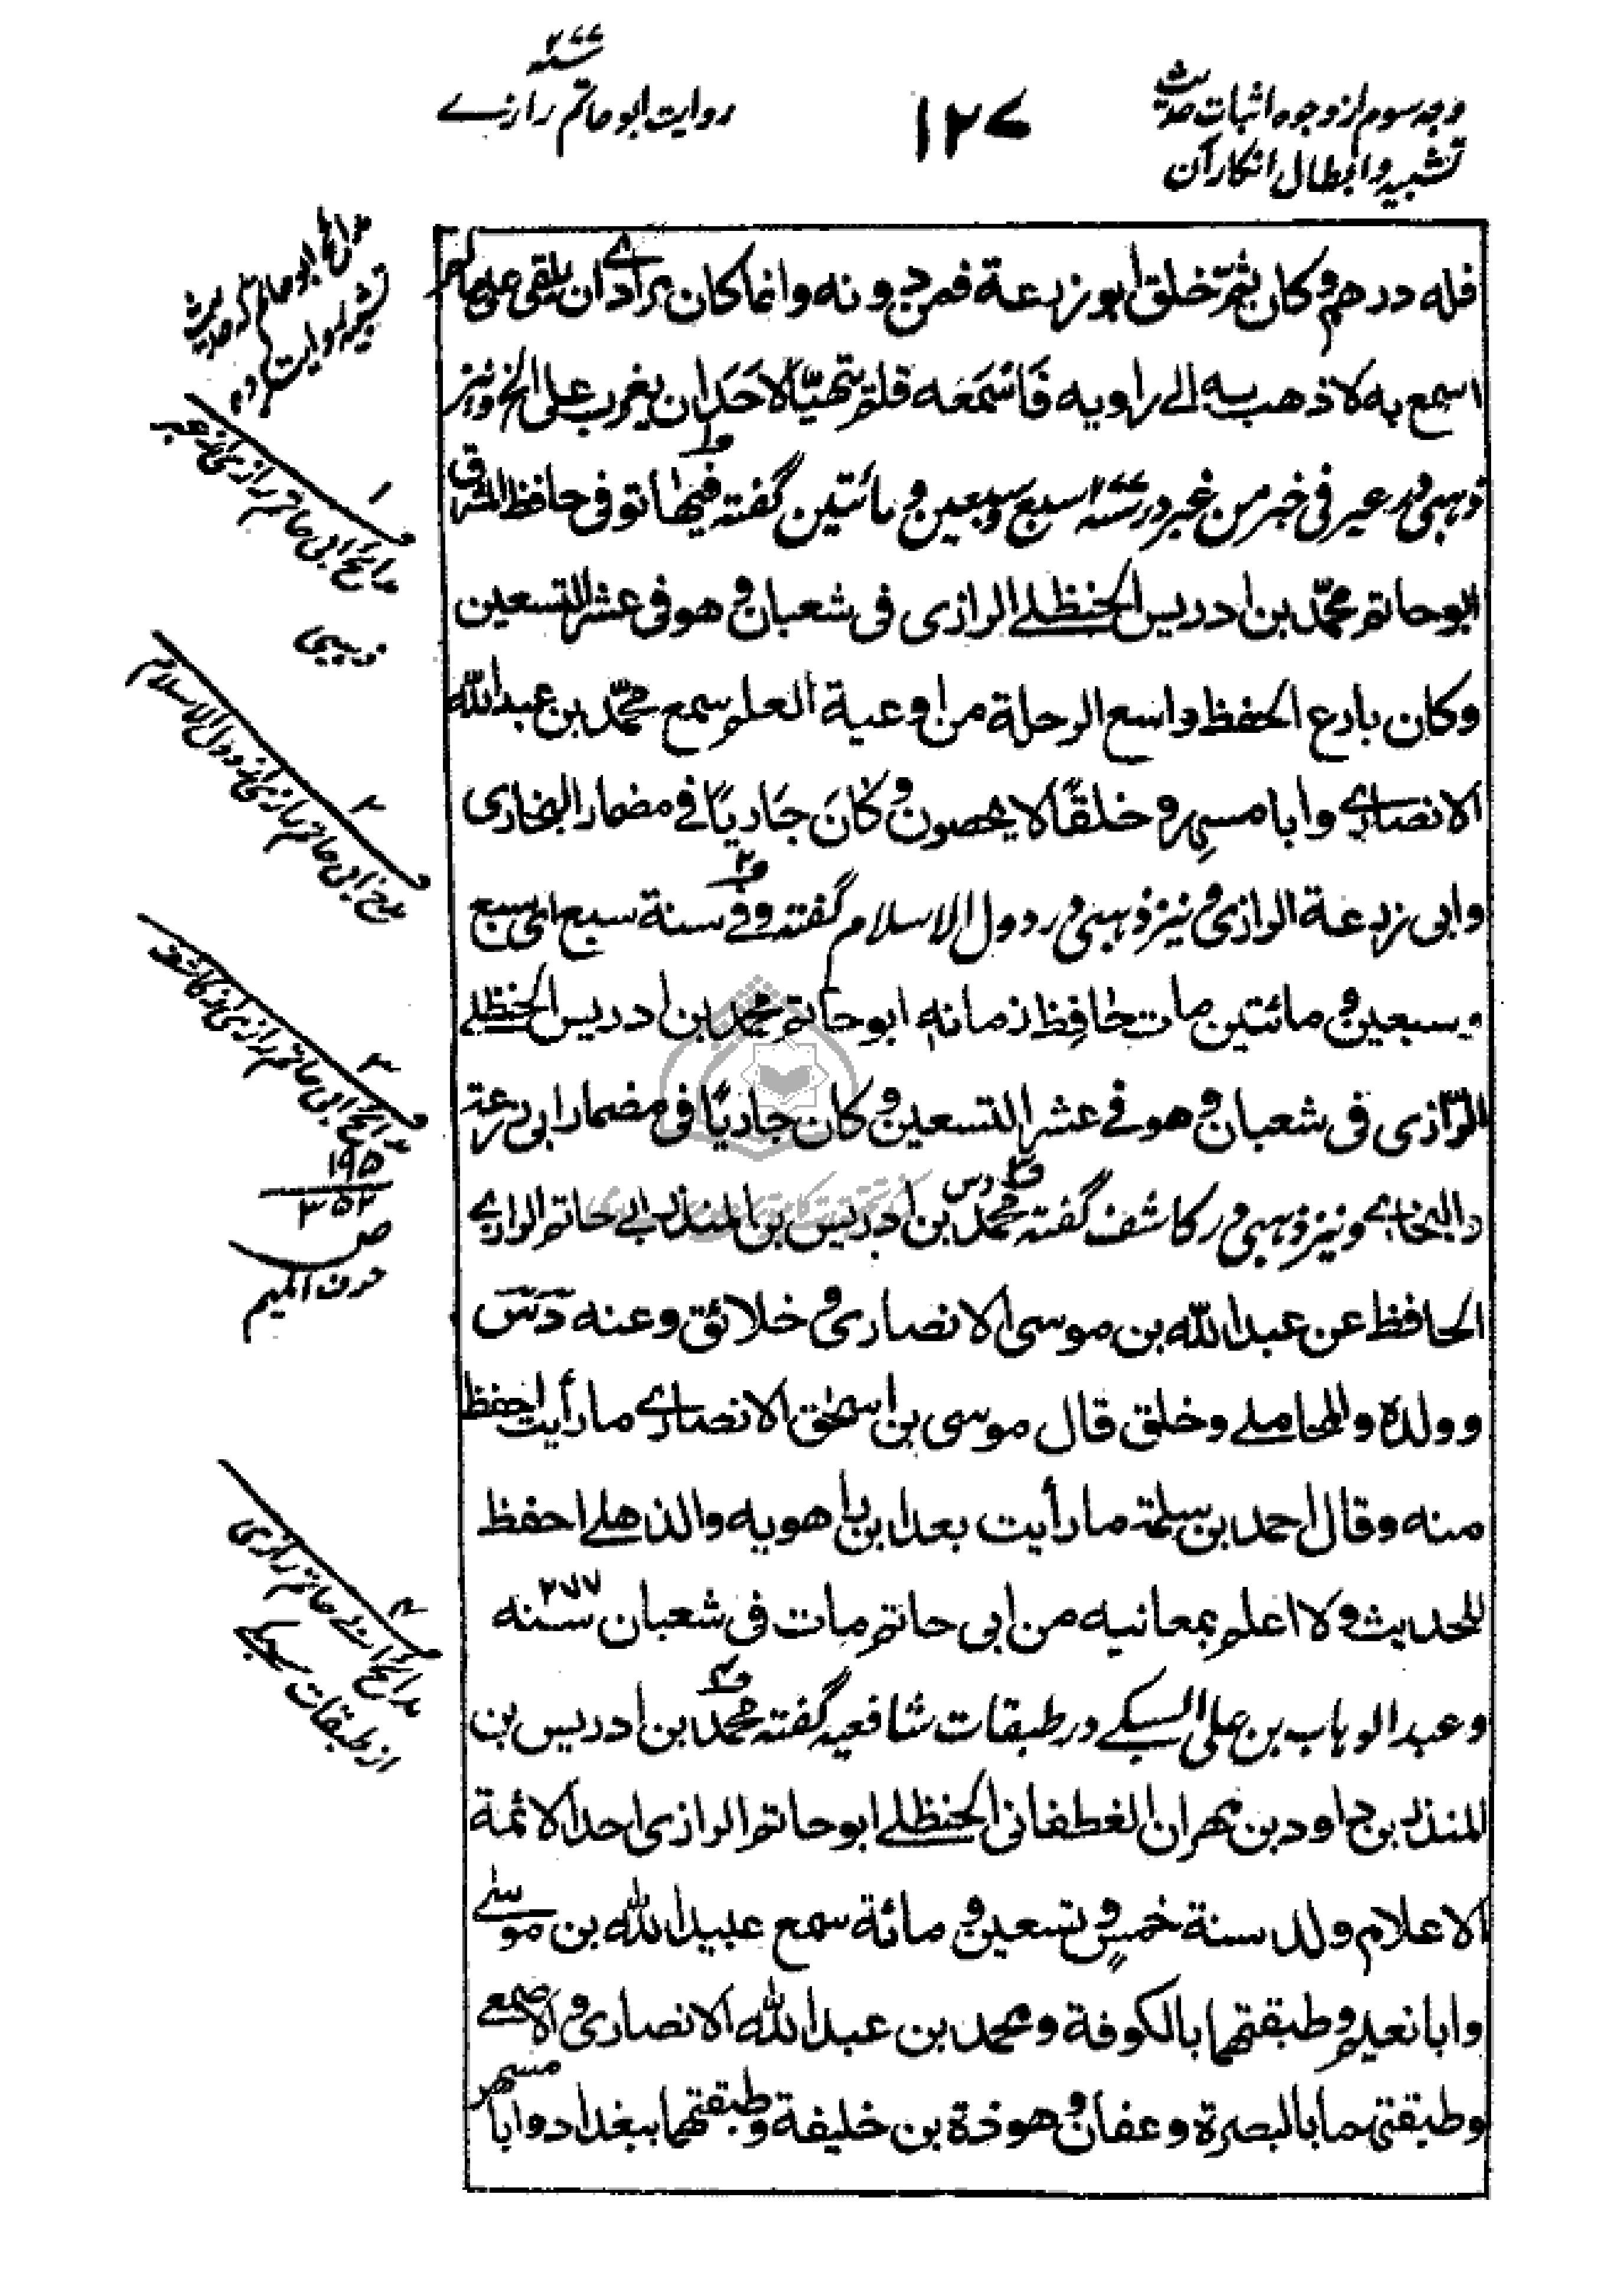 وجه سوم از وجوه اثبات حدیث
تشبیه و ابطال انکار آن
۱۲۷
۲۷۷ سنه
روایت ابو حاتم رازے
فله درهم و کان ثمّ خلق ابو زرعة فمن دونه وانما کان مرادے ان یلقی علی ما لم
اسمع به لاذهب به الے راویه فَاَسْمَعه فلم یتهیّأ لاَحَد ان یغرب علی الخ و نیز
ذهبی در عبر فی خبر من غبر در سنه ۲۷۷ سبع و سبعین و مائتین گفته فیها توفی حافظ المشرق
ابو حاتم محمّد بن ادریس الحنظلے الرازی فی شعبان و هو فی عشر التسعین
و کان بارع الحفظ واسع الرحلة من اوعیة العلم سمع محمّد بن عبد الله
الانصارے وابا مسهر و خلقًا لا یحصون و کَانَ جَاریًا فے مضمار البخاری
وابی زرعة الرازی و نیز ذهبی در دول الاسلام گفته و فے سنة سبع ای سبع
و سبعین و مائتین مات حَافِظ زمانه ابو حاتم محمد بن ادریس الحنظلے
الرّازی فی شعبان و هو فے عشر التسعین و کان جاریًا فی مضمار ابی زرعة
والبخارے و نیز ذهبی در کاشف گفته محمّد دس بن ادریس بن المنذر ابے حاتم الرازے
الحافظ عن عبد الله بن موسی الانصاری و خلائق و عنه دَسَ
و ولده والمحاملے و خلق قال موسی بن اسحٰق الانصارے ما رأیت احفظ
منه و قال احمد بن سلمة ما رأیت بعد ابن راهویه والذهلے احفظ
للحدیث و لا اعلم بمعانیه من ابی حاتم مات فی شعبان سنه ۲۷۷
و عبد الوهاب بن علی السبکے در طبقات شافعیه گفته محمّد بن ادریس بن
المنذر بن داود بن مهران الغطفانی الحنظلے ابو حاتم الرازی احد الائمة
الاعلام ولد سنة خمسٍ و تسعین و مائة سمع عبید الله بن موسٰے
وابا نعیم و طبقتهما بالکوفة و محمد بن عبد الله الانصاری و الاصمعے
و طبقتهما بالبصرة و عفان و هوذة بن خلیفة و طبقتهما ببغداد و ابا مسهر
مدائح ابو حاتم که حدیث
تشبیه را روایت کرده
۱
مدائح ابی حاتم رازی از عبر
ذهبی
۲
مدائح ابی حاتم رازی از دول الاسلام
۳
مدائح ابی حاتم رازی از کاشف
۱۹۵
۳۵۲
ص
حرف المیم
۴
مدائح ابے حاتم رازی
از طبقات سبکے